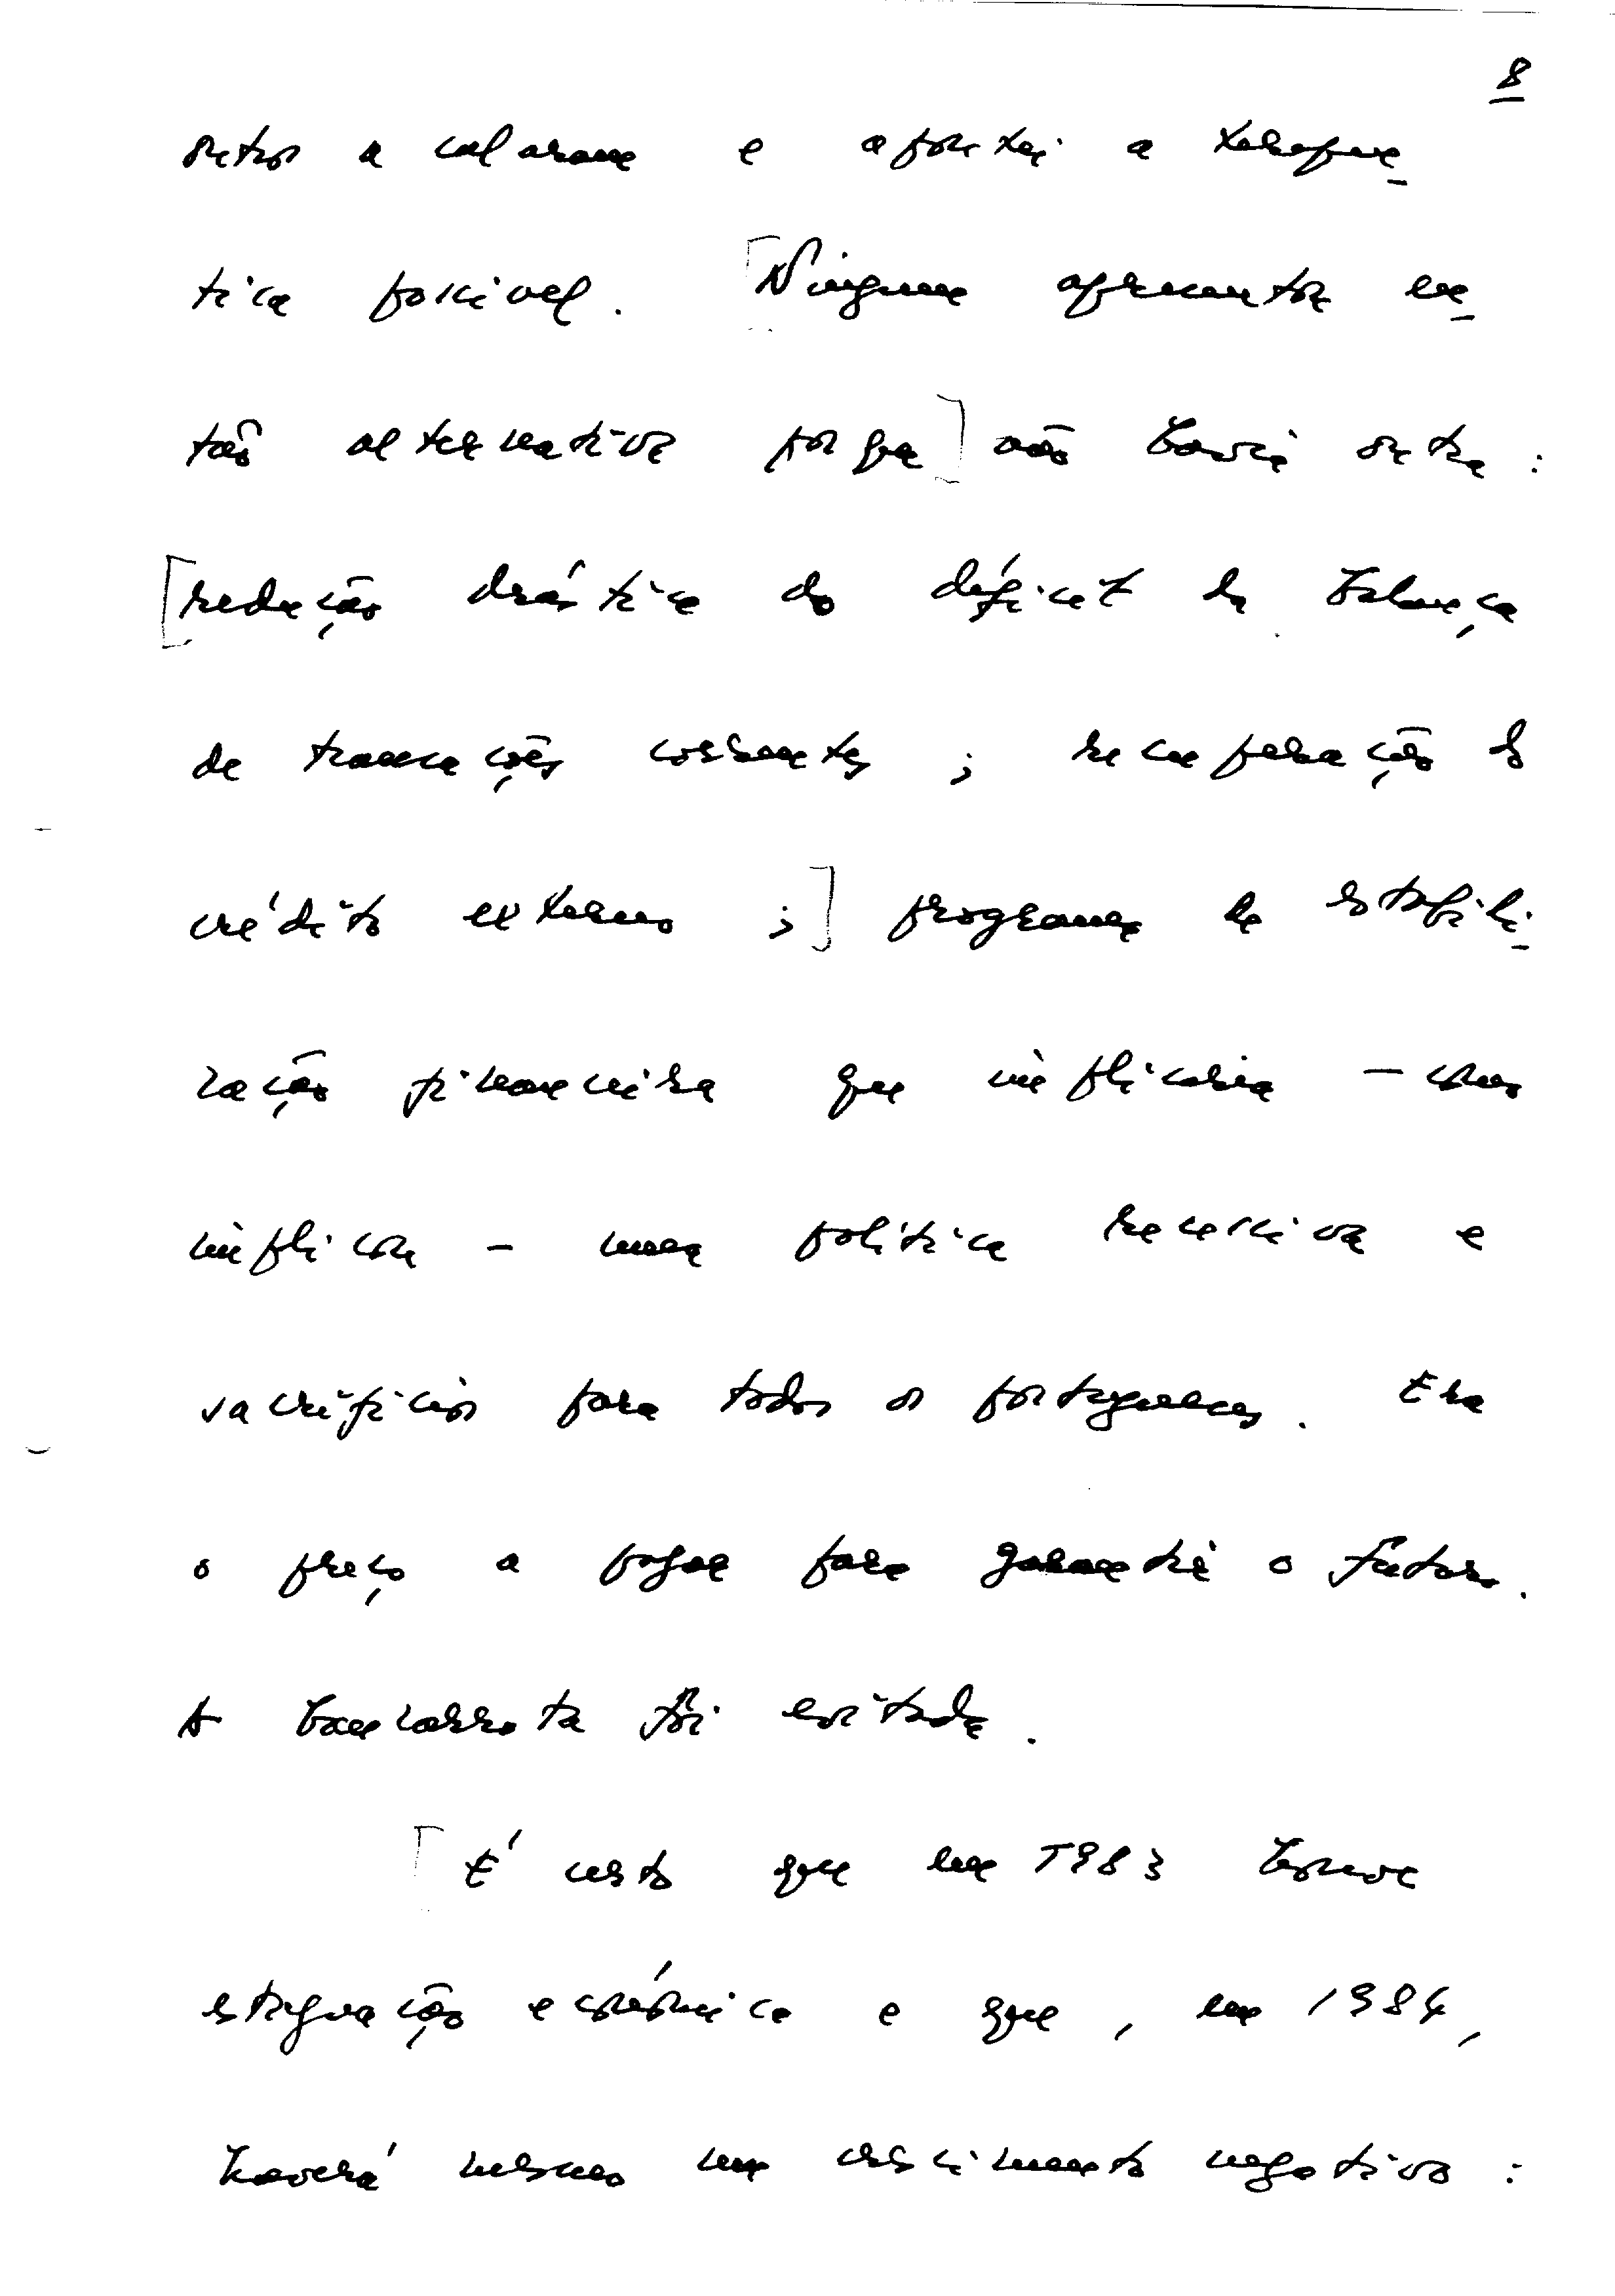 8
outros a calaram e apontei a terapêu-
tica possível. [Ninguem apresentou en-
tão alternativa porque] não havia outra:
[redução drástica do déficit da balança
de transações correntes; recuperação do
crédito externo;] programa de estabili-
zação financeira que implicaria - como
implicou - uma política recessiva e
sacrifícios para todos os portugueses. Era
o preço a pagar para garantir o futuro.
A bancarrota foi evitada.
[É certo que em 1983 houve
estagnação económica e que, em 1984,
haverá mesmo um crescimento negativo: